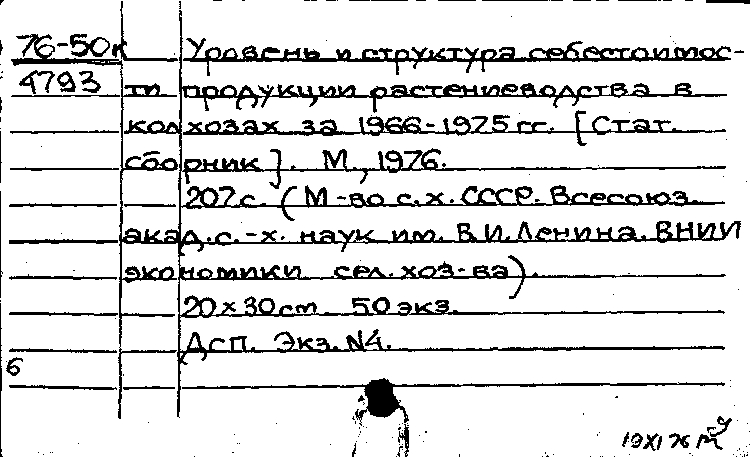 76-50к Уровень и структура себестоимос-
4793 ти продукции растениеводства в
колхозах за 1966-1975 гг. [Стат.
сборник]. М., 1976.
207 с. (М-во с. х. СССР. Всесоюз.
акад. с.-х. наук им. В.И. Ленина. ВНИИ
экономики сел. хоз-ва).
20х30 см. 50 экз.
Дсп. Экз. N4.
6
19 XI 76